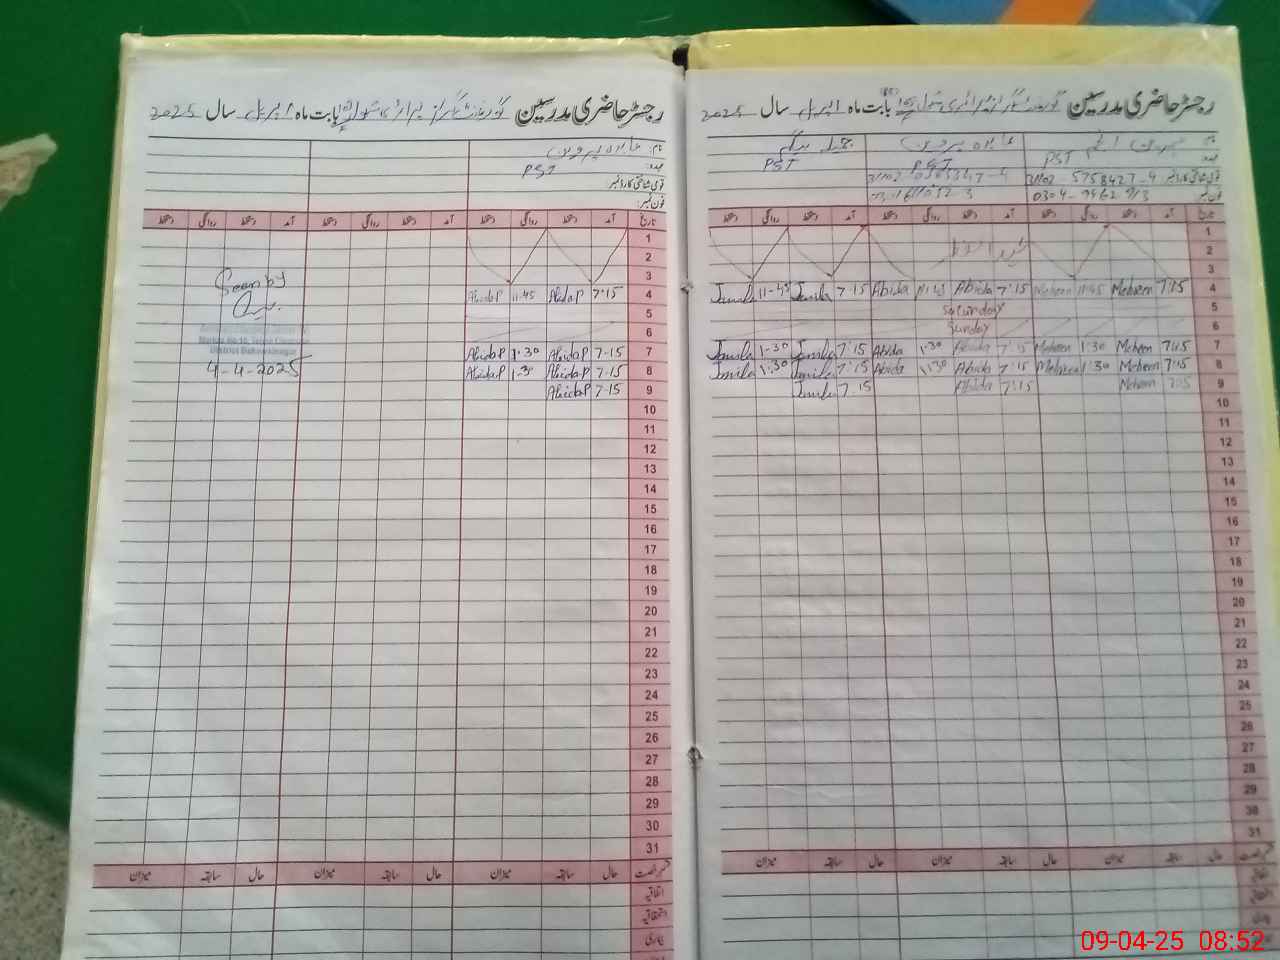 رجسٹر حاضری مدرسین گورنمنٹ گرلز پرائمری سکول بابت ماہ اپریل سال 2025
نام:
عہدہ: PST PST PST
قومی شناختی کارڈ نمبر 31102-5758427-4
فون نمبر:
تاریخ آمد دستخط روانگی دستخط آمد دستخط روانگی دستخط آمد دستخط روانگی دستخط
1
2 عید الفطر
3
4 7:15 Mehreen 11:45 Mehreen 7:15 Abida 11:45 Abida 7:15 Jamila 11-45 Jamila
5 Saturday
6 Sunday
7 7:15 Mehreen 1:30 Mehreen 7:15 Abida 1:30 Abida 7:15 Jamila 1-30 Jamila
8 7:15 Mehreen 1:30 Mehreen 7:15 Abida 1:30 Abida 7:15 Jamila 1:30 Jamila
9 7:15 Mehreen 7:15 Abida 7:15 Jamila
10
11
12
13
14
15
16
17
18
19
20
21
22
23
24
25
26
27
28
29
30
31
قسم رخصت حال سابقہ میزان حال سابقہ میزان حال سابقہ میزان
اتفاقیہ
استحقاقیہ
بیماری
رجسٹر حاضری مدرسین گورنمنٹ گرلز پرائمری سکول بابت ماہ اپریل سال 2025
نام: عابدہ پروین
عہدہ: PST
قومی شناختی کارڈ نمبر
فون نمبر:
تاریخ آمد دستخط روانگی دستخط آمد دستخط روانگی دستخط آمد دستخط روانگی دستخط
1
2
3
4 7:15 Abida P 11:45 Abida P
5
6
7 7-15 Abida P 1:30 Abida P
8 7-15 Abida P 1:30 Abida P
9 7-15 Abida P
10
11
12
13
14
15
16
17
18
19
20
21
22
23
24
25
26
27
28
29
30
31
Seen by
District Bahawalnagar
4-4-2025
قسم رخصت حال سابقہ میزان حال سابقہ میزان حال سابقہ میزان
اتفاقیہ
استحقاقیہ
بیماری
09-04-25 08:52